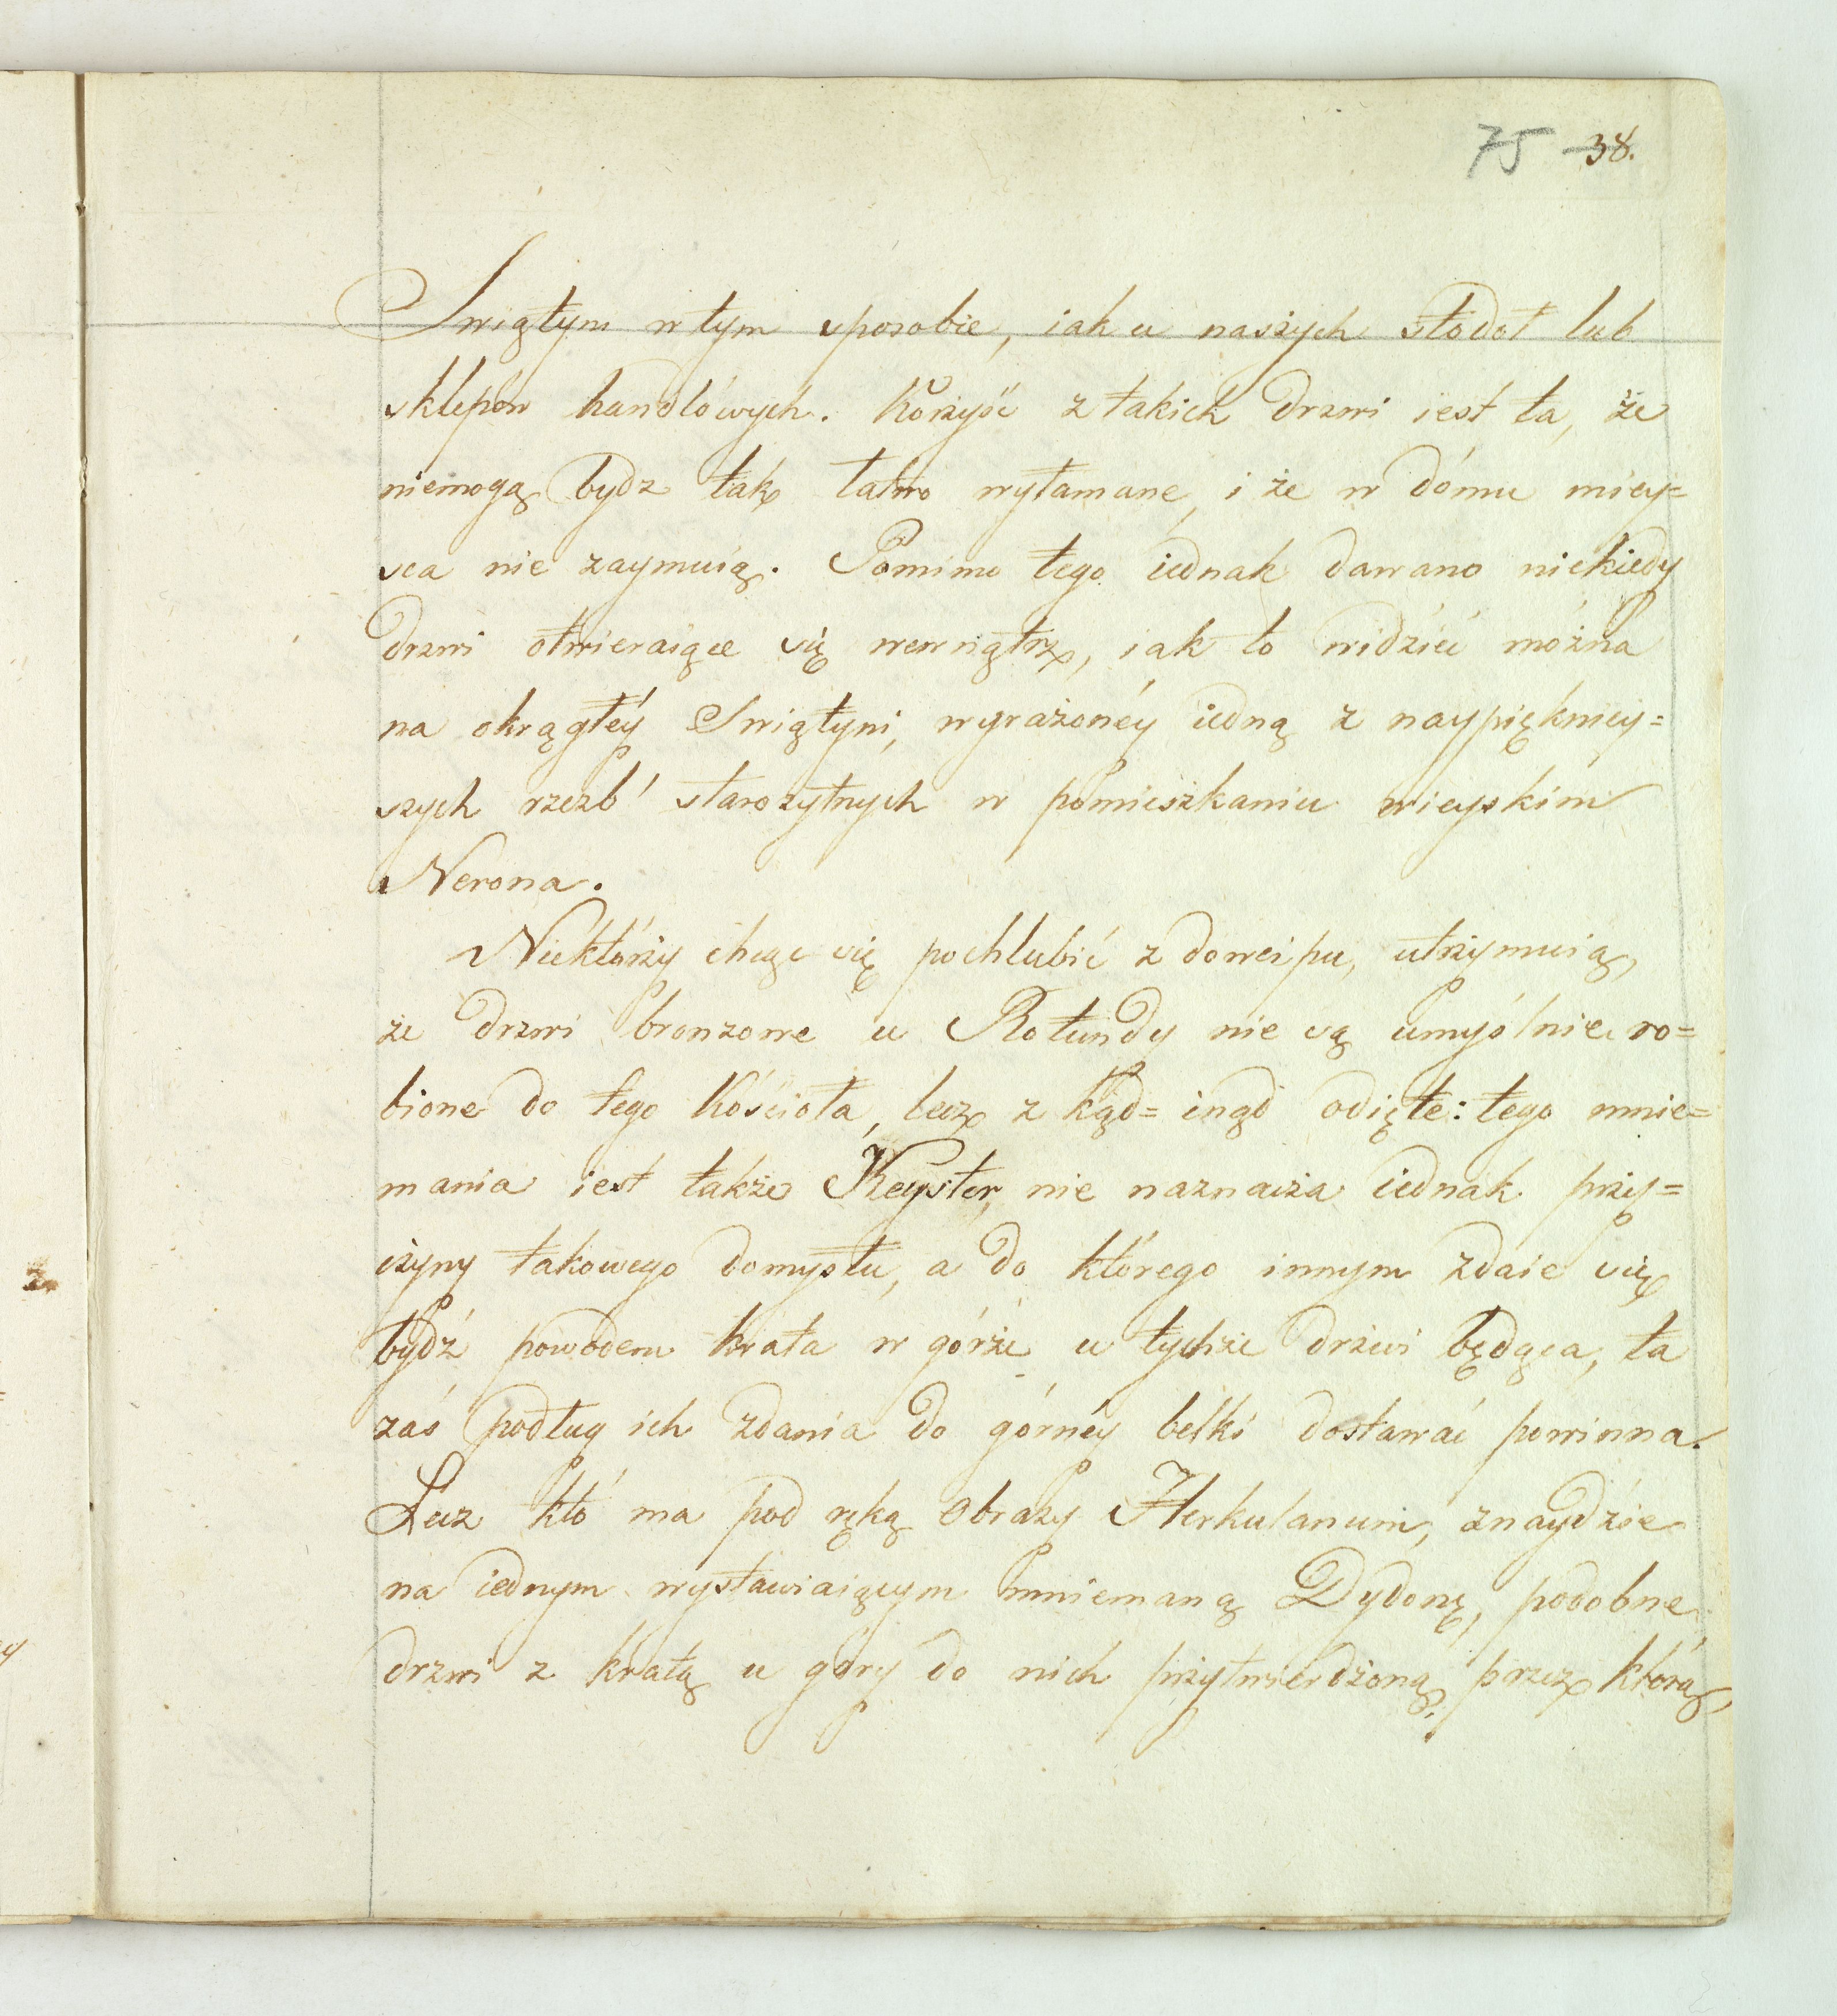 75 38.
Swiątyni w tym sposobie, iak u naszych stodoł lub
sklepów handlówych. Korzyść z takich drzwi iest ta, że
niemogą bydz tak łatwo wyłamane, i że w dómu miey=
sca nie zaymuią. Pomimo tego iednak dawano niekiedy
drzwi otwieraiące się wewnątrz, iak to widzieć można
na okrągłéy Swiątyni, wyrażonéy iedną z naypiękniey=
szych rzezb starozytnych w pomieszkaniu wieyskim
Nerona.
Niektórzy chcąc się pochlubić z dowcipu, utrzymuią,
że drzwi bronzowe u Rotundy nie są umyślnie ro=
bione do tego Kościoła, lecz z kąd= inąd odięte: tego mnie=
mania iest także Keysler, nie naznacza iednak przy=
czyny takowego domysłu, a do którego innym zdaie się
bydź powodem krata w górze u tychże drzwi będąca, ta
zaś podług ich zdania do górnéy belki dostawać powinna.
Lecz kto ma pod ręką Obrazy Herkulanum, znaydzie
na iednym wystawiaiącym mniemaną Dydonę, podobne
drzwi z kratą u góry do nich przytwierdzoną, przez którą,